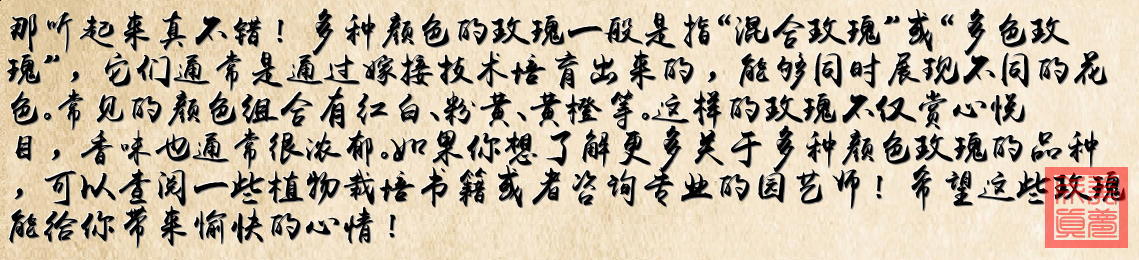 那听起来真不错！多种颜色的玫瑰一般是指“混合玫瑰”或“多色玫
瑰”，它们通常是通过嫁接技术培育出来的，能够同时展现不同的花
色。常见的颜色组合有红白、粉黄、黄橙等。这样的玫瑰不仅赏心悦
目，香味也通常很浓郁。如果你想了解更多关于多种颜色玫瑰的品种
，可以查阅一些植物栽培书籍或者咨询专业的园艺师！希望这些玫瑰
能给你带来愉快的心情！